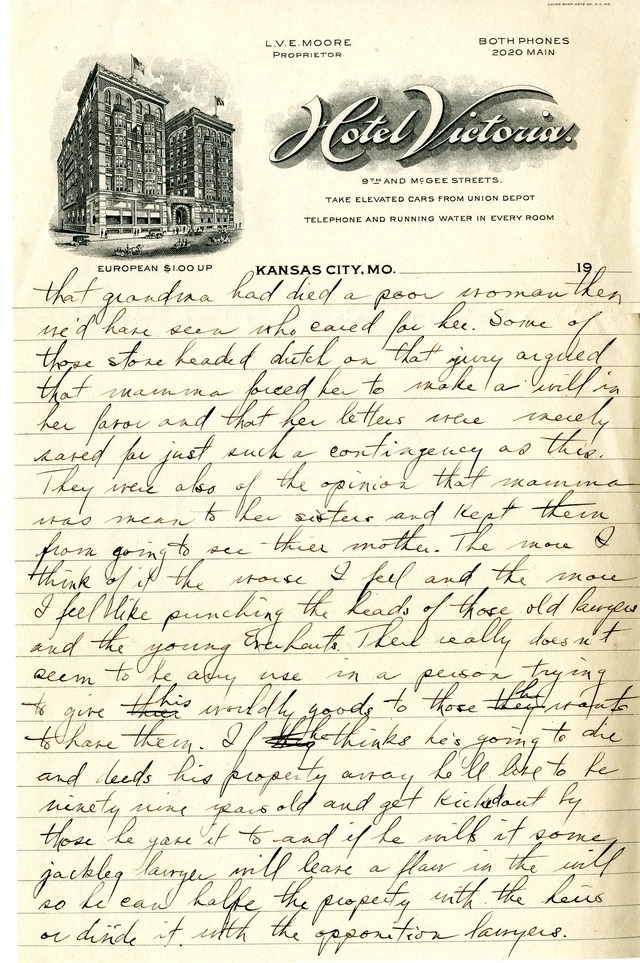 L.V.E. MOORE
PROPRIETOR
BOTH PHONES
2020 MAIN
Hotel Victoria.
9TH AND McGEE STREETS.
TAKE ELEVATED CARS FROM UNION DEPOT
TELEPHONE AND RUNNING WATER IN EVERY ROOM
EUROPEAN $1.00 UP
KANSAS CITY, MO. 19
that grandma had died a poor woman then
we'd have seen who cared for her. Some of
those stone headed dutch on that jury argued
that mamma forced her to make a will in
her favor and that her letters were merely
saved for just such a contingency as this.
They were also of the opinion that mamma
was mean to her sisters and kept them
from going to see thier mother. The more I
think of it the worse I feel and the more
I feel like punching the heads of those old lawyers
and the young Everharts. There really doesn't
seem to be any use in a person trying
to give their his worldly goods to those they he wants
to have them. If they he thinks he's going to die
and deeds his property away he'll live to be
ninety nine years old and get kicked out by
those he gave it to and if he wills it some
jackleg lawyer will leave a flaw in the will
so he can halfe the property with the heirs
or divide it with the opposition lawyers.